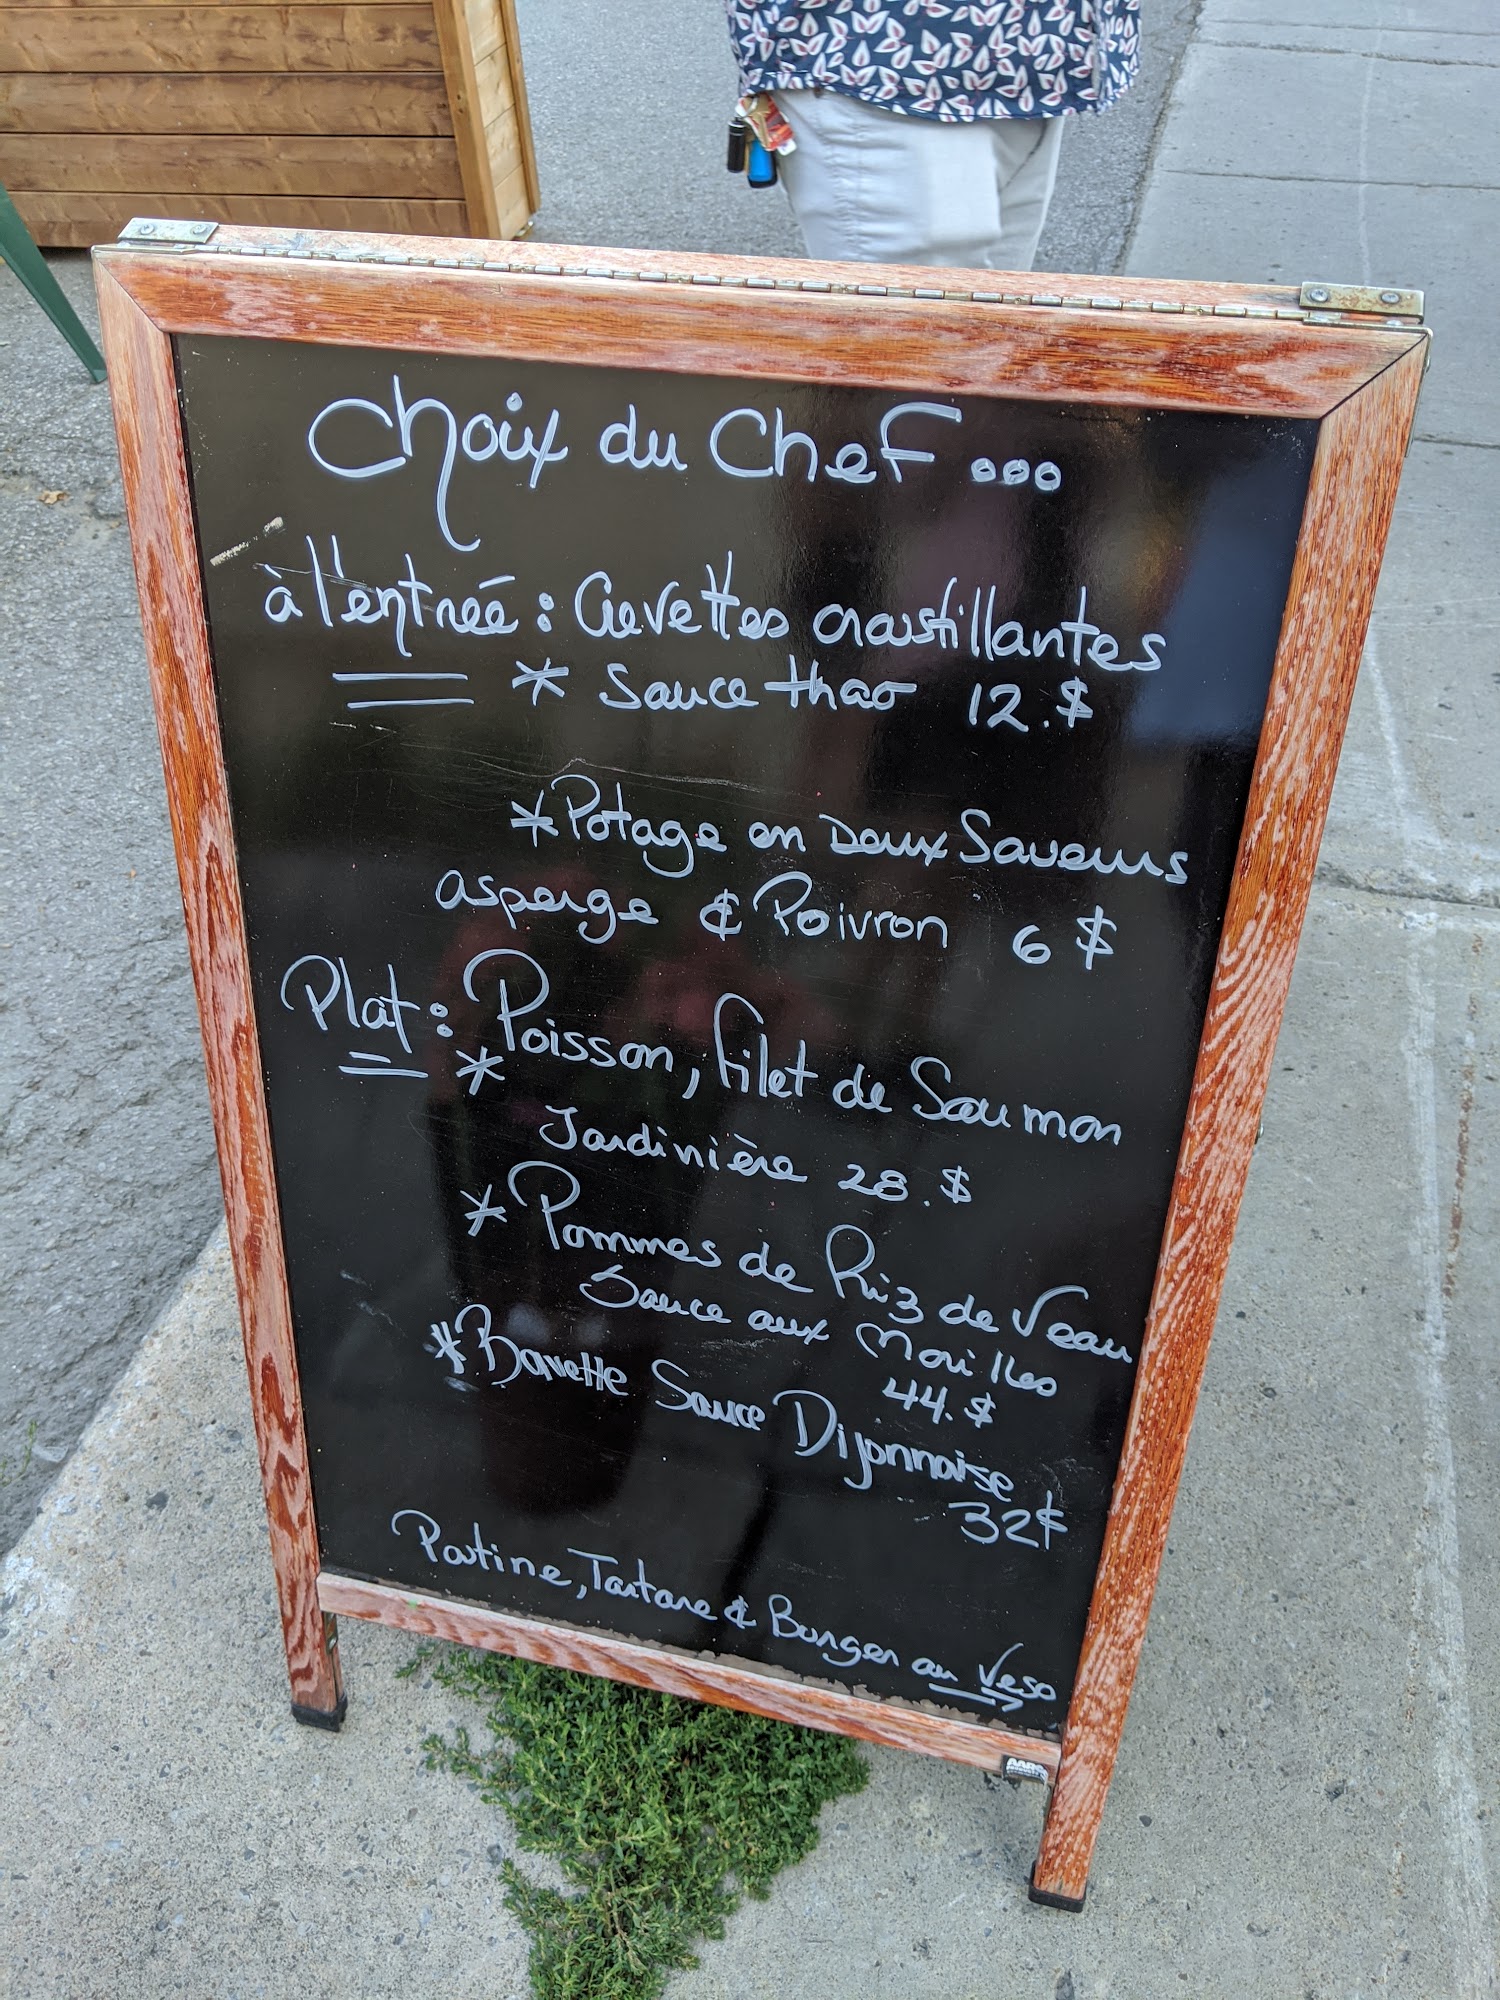 Choix du Chef ...
à l'entrée : Crevettes croustillantes
* Sauce thao 12.$
* Potage en Deux Saveurs
asperge & Poivron 6 $
Plat : Poisson, filet de Saumon
* Jardinière 28.$
* Pommes de Riz de Veau
Sauce aux Morilles
44.$
* Bavette Sauce Dijonnaise
32$
Poutine, Tartare & Burger au Veso